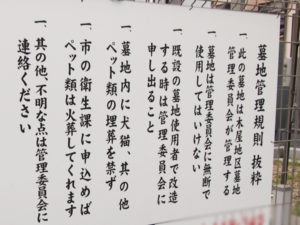 墓地管理規則 抜粋
一、此の墓地は木屋地区墓地
管理委員会が管理する
一、墓地は管理委員会に無断で
使用してはいけない
一、既設の墓地使用者で改造
する時は管理委員会に
申し出ること
一、墓地内に犬猫、其の他
ペット類の埋葬を禁ず
一、市の衛生課に申込めば
ペット類は火葬してくれます
一、其の他、不明な点は管理委員会に
連絡ください